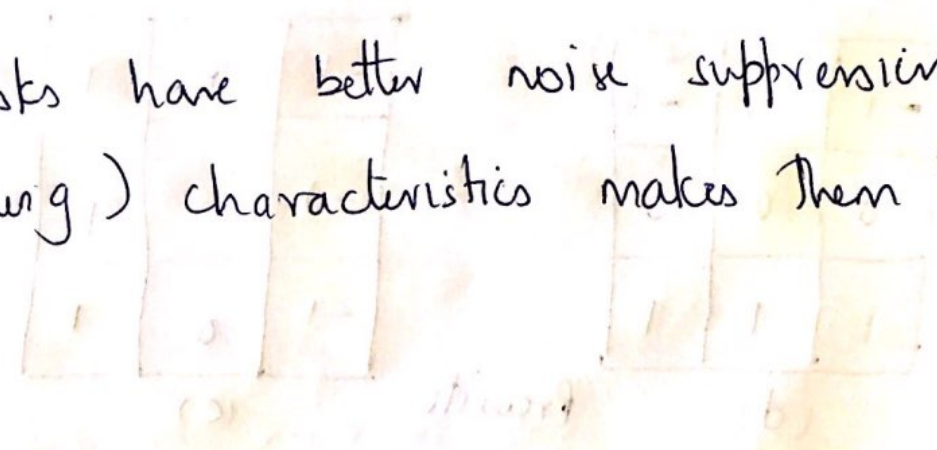 sks have better noise suppression
ing ) characteristics makes them